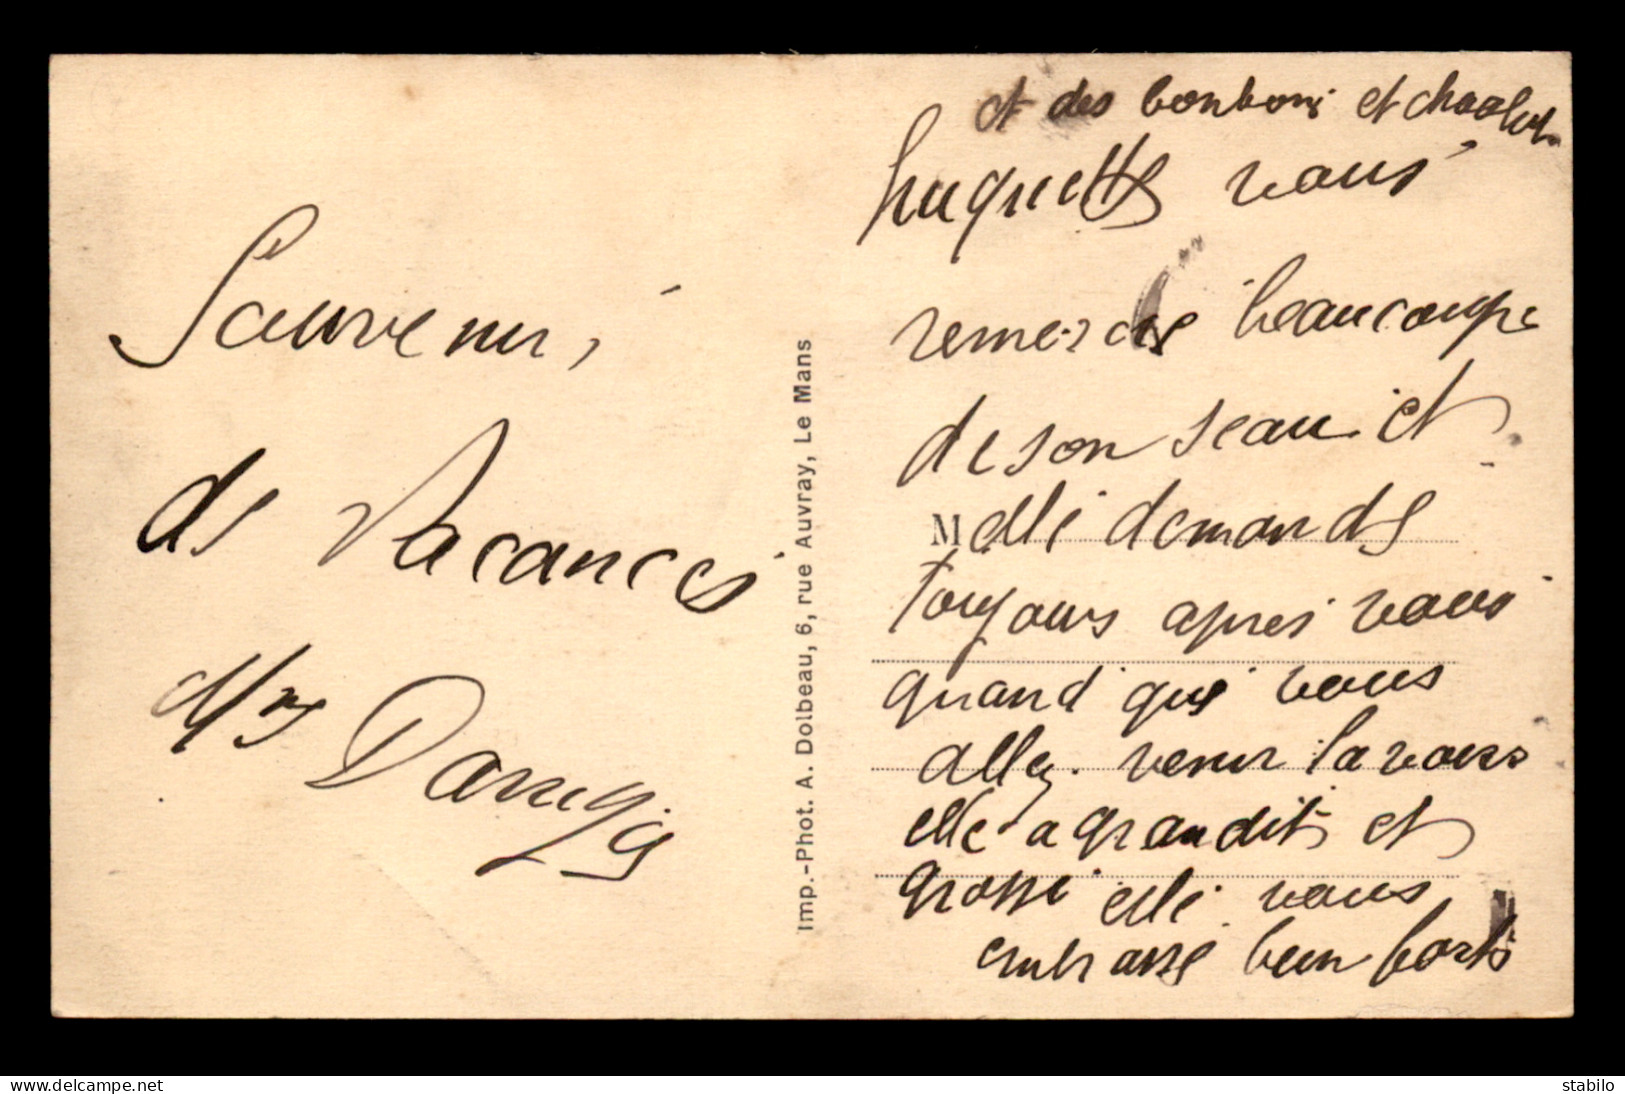 Souvenir,
de Vacances
Mme
Imp.-Phot. A. Dolbeau, 6, rue Auvray, Le Mans
et des bonbons et chocolat
huguette vous
remercie beaucoupe
de son seau et
M elle demande
toujours apres vous
quand que vous
allez venir la voir
elle a grandit et
grossi elle vous
embrasse bien forts
www.delcampe.net
stabilo